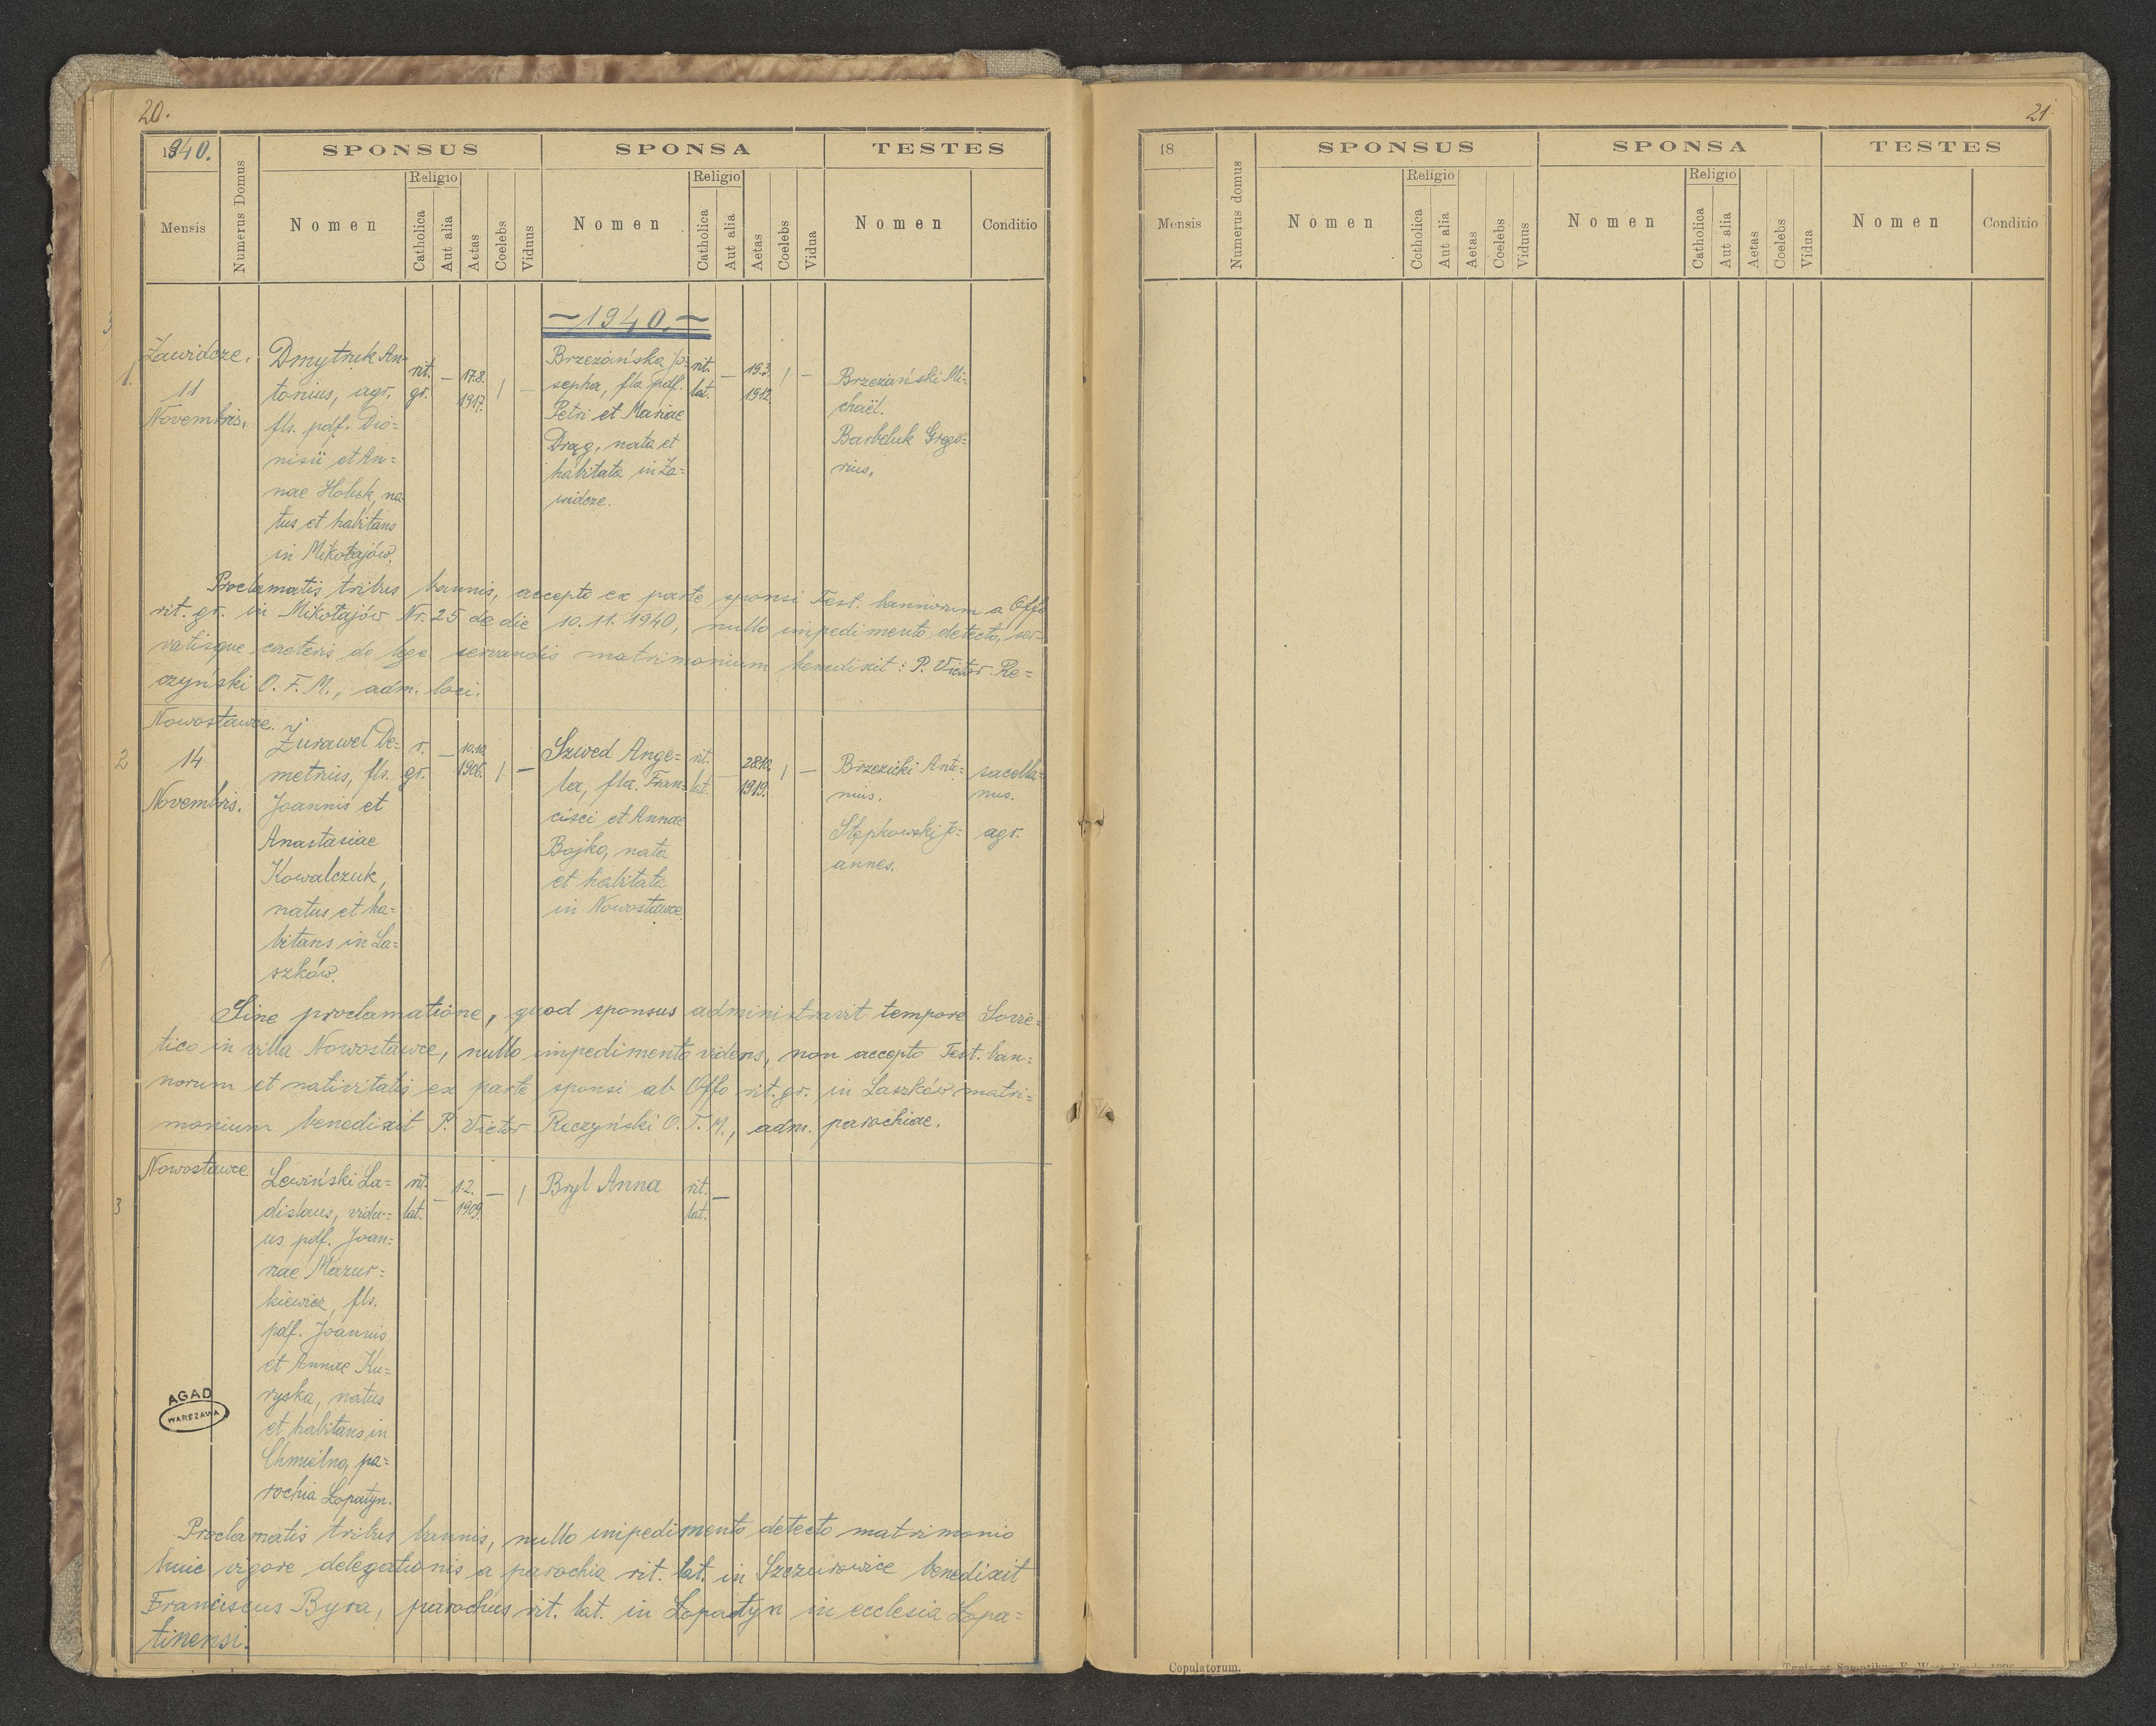 20.
1940.
Mensis
Numerus Domus
SPONSUS
Nomen
Religio
Catholica
Aut alia
Aetas
Coelebs
Viduus
SPONSA
Nomen
Religio
Catholica
Aut alia
Aetas
Coelebs
Vidua
TESTES
Nomen
Conditio
— 1940. —
1.
Zawidcze.
11
Novembris.
Dmytruk An=
tonius, agr.
fls. pdf. Dio=
nisii et An=
nae Holuk, na=
tus et habitans
in Mikołajów.
rit.
gr.
—
17.8.
1917.
1
—
Brzezańska Jo=
sepha, fla pdf.
Petri et Mariae
Drąg, nata et
habitata in Za=
widcze.
rit.
lat.
—
19.3.
1912.
1
—
Brzezański Mi=
chaël.
Barbeluk Grego=
rius.
Proclamatis tribus bannis, accepto ex parte sponsi Test. bannorum a Offo
rit. gr. in Mikołajów Nr. 25 de die 10.11.1940, nullo impedimento detecto, ser=
vatisque caeteris de lege servandis matrimonium benedixit: P. Victor Re=
czyński O. F. M., adm. loci.
2
Nowostawce.
14
Novembris.
Żurawel De=
metrius, fls.
Joannis et
Anastasiae
Kowalczuk,
natus et ha=
bitans in La=
szków.
r.
gr.
—
10.10.
1906.
1
—
Szwed Ange=
la, fla. Fran=
cisci et Annae
Bojko, nata
et habitata
in Nowostawce.
rit.
lat.
—
28.10.
1919.
1
—
Brzezicki Anto=
nius.
sacella=
nus.
Stępkowski Jo=
annes.
agr.
Sine proclamatione, quod sponsus administravit tempore Sovie=
tico in villa Nowostawce, nullo impedimento videns, non accepto Test. ban=
norum et nativitatis ex parte sponsi ab Offo rit. gr. in Laszków matri=
monium benedixit P. Victor Reczyński O. F. M., adm. parochiae.
3
Nowostawce
Lewiński La=
dislaus, vidu=
us pdf. Joan=
nae Mazur=
kiewicz, fls.
pdf. Joannis
et Annae Ku=
ryska, natus
et habitans in
Chmielno, pa=
rochia Łopatyn.
rit.
lat.
—
1.2.
1909.
—
1
Bryl Anna
rit.
lat.
—
Proclamatis tribus bannis, nullo impedimento detecto matrimonio
huic vigore delegationis a parochia rit. lat. in Szczurowice benedixit
Franciscus Byra, parochus rit. lat. in Łopatyn in ecclesia Łopa=
tinensi.
AGAD
WARSZAWA
21
18
Mensis
Numerus domus
SPONSUS
Nomen
Religio
Cctholica
Aut alia
Aetas
Coelebs
Viduus
SPONSA
Nomen
Religio
Catholica
Aut alia
Aetas
Coelebs
Vidua
TESTES
Nomen
Conditio
Copulatorum.